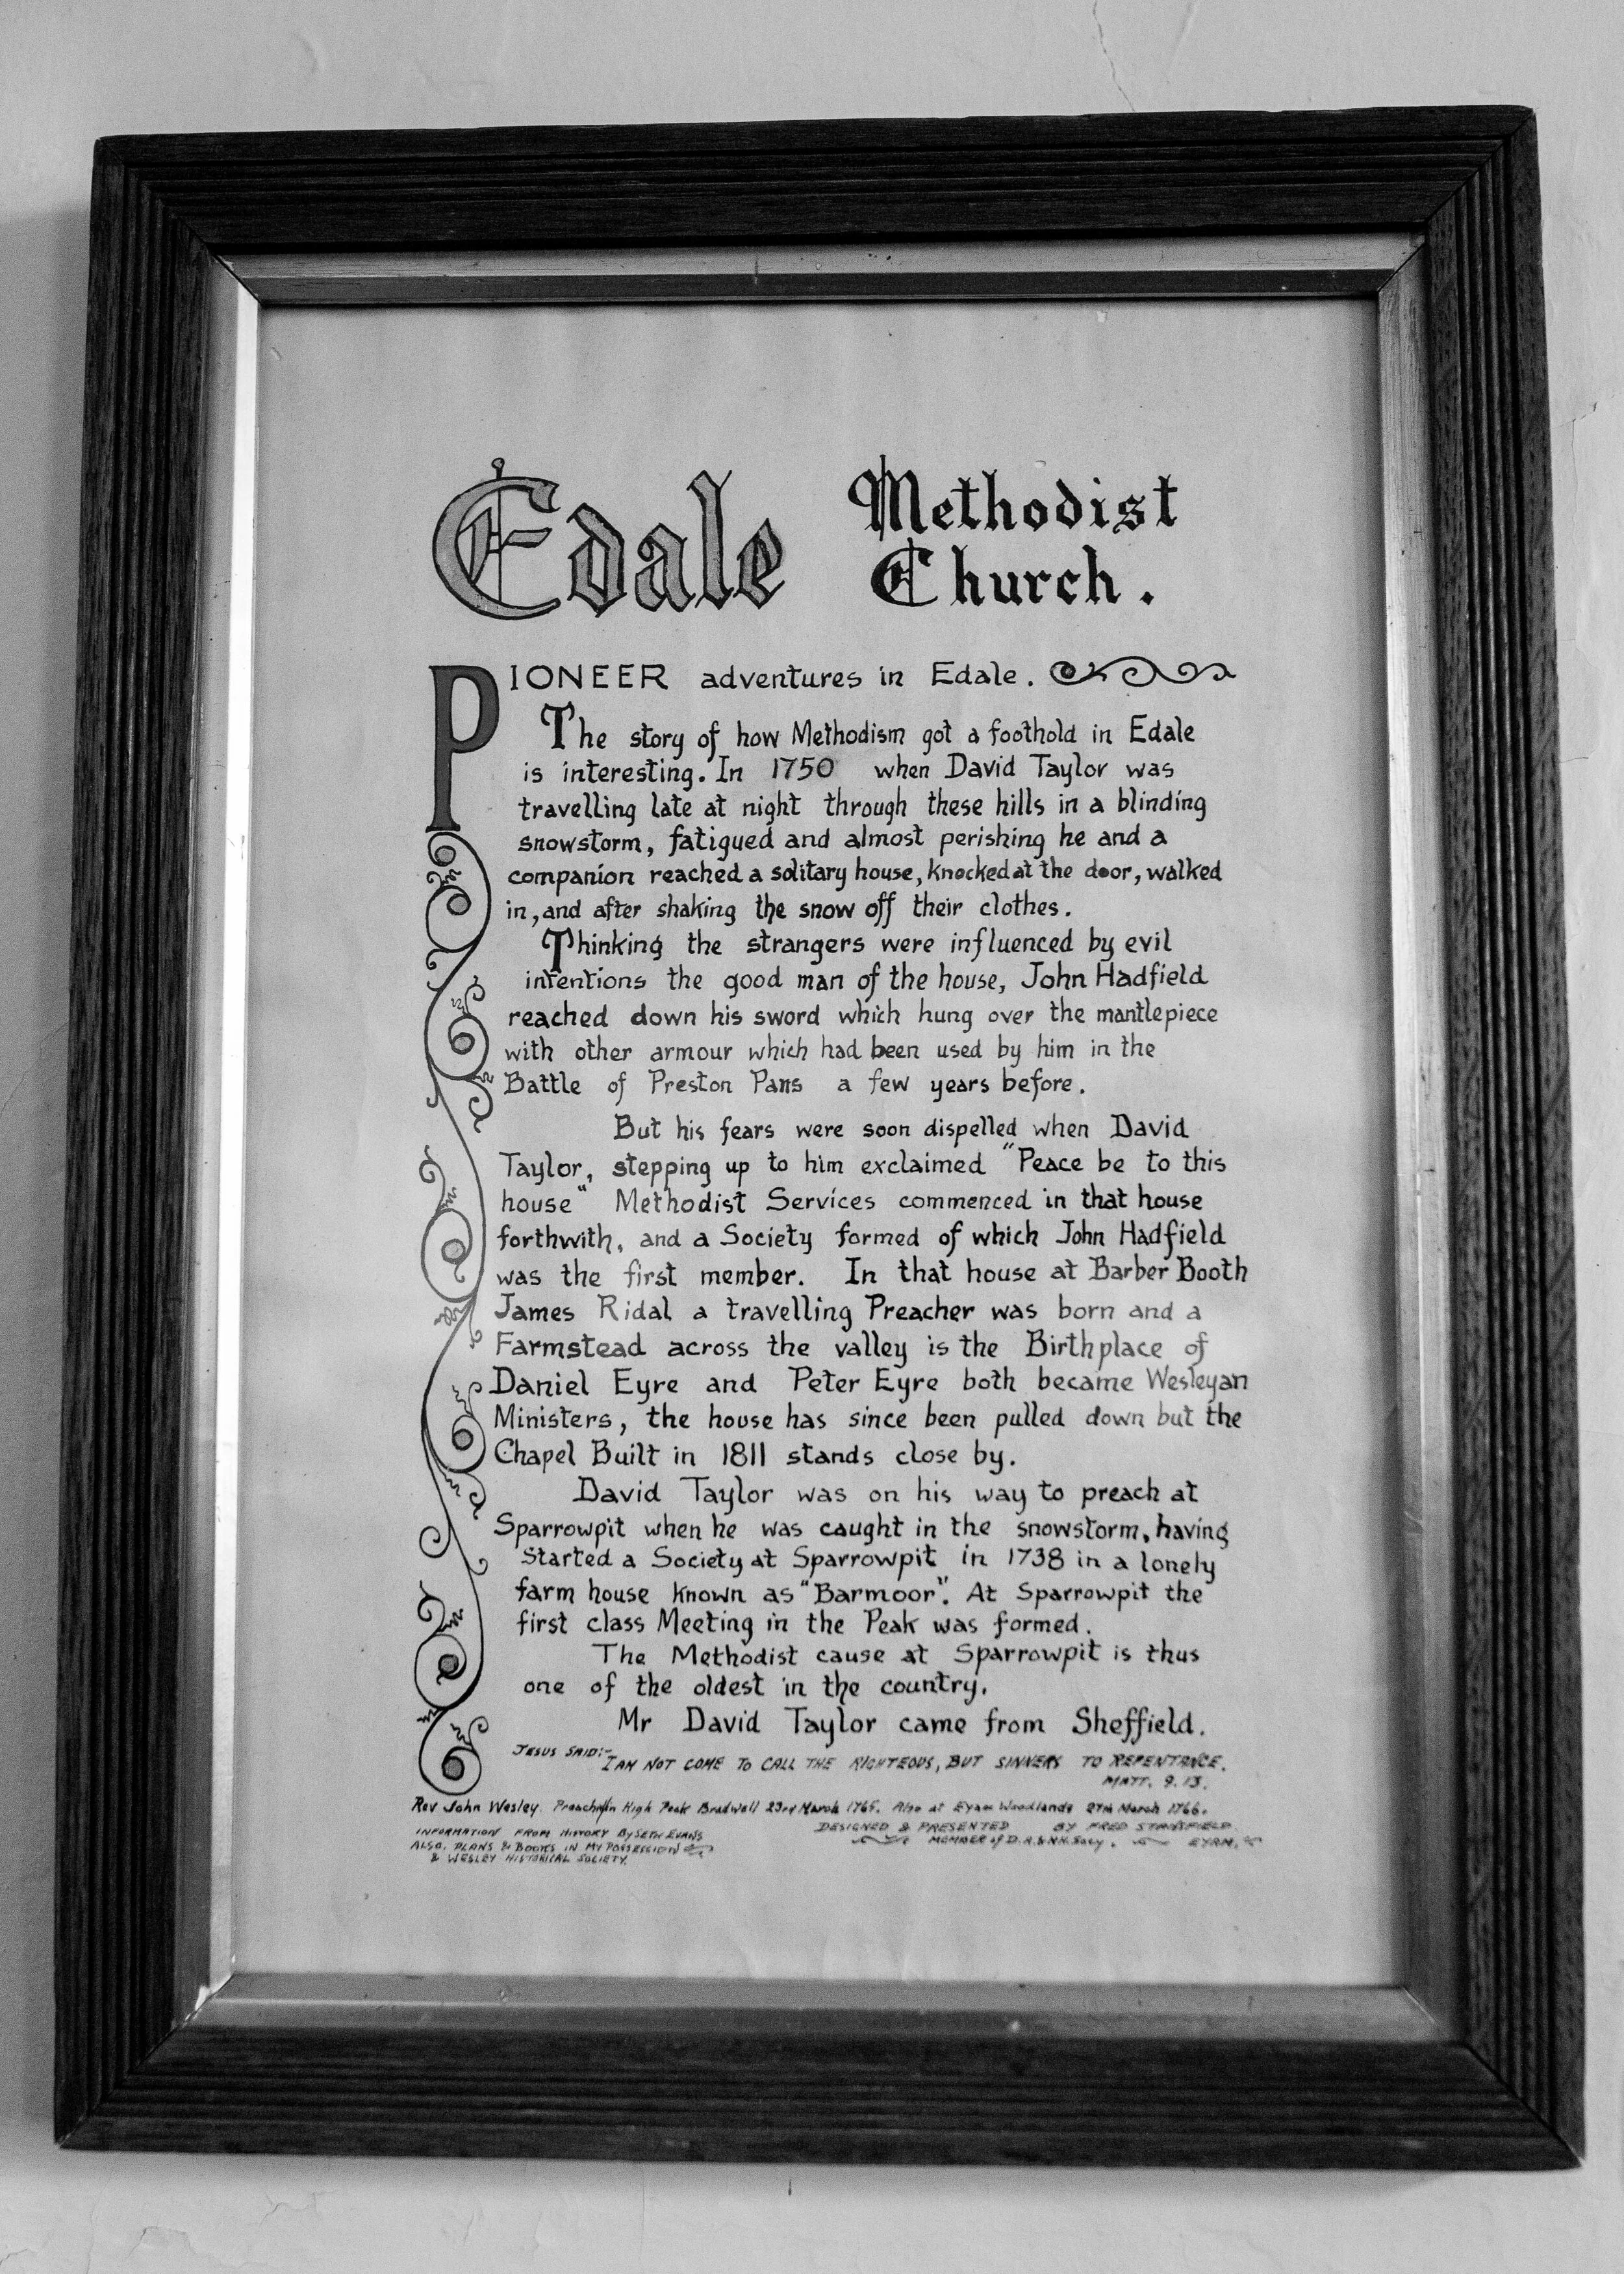 Edale Methodist
Church.
PIONEER adventures in Edale.
The story of how Methodism got a foothold in Edale
is interesting. In 1750 when David Taylor was
travelling late at night through these hills in a blinding
snowstorm, fatigued and almost perishing he and a
companion reached a solitary house, knocked at the door, walked
in, and after shaking the snow off their clothes.
Thinking the strangers were influenced by evil
intentions the good man of the house, John Hadfield
reached down his sword which hung over the mantlepiece
with other armour which had been used by him in the
Battle of Preston Pans a few years before.
But his fears were soon dispelled when David
Taylor, stepping up to him exclaimed "Peace be to this
house" Methodist Services commenced in that house
forthwith, and a Society formed of which John Hadfield
was the first member. In that house at Barber Booth
James Ridal a travelling Preacher was born and a
Farmstead across the valley is the Birthplace of
Daniel Eyre and Peter Eyre both became Wesleyan
Ministers, the house has since been pulled down but the
Chapel Built in 1811 stands close by.
David Taylor was on his way to preach at
Sparrowpit when he was caught in the snowstorm, having
started a Society at Sparrowpit in 1738 in a lonely
farm house known as "Barmoor". At Sparrowpit the
first class Meeting in the Peak was formed.
The Methodist cause at Sparrowpit is thus
one of the oldest in the country.
Mr David Taylor came from Sheffield.
JESUS SAID:- I AM NOT COME TO CALL THE RIGHTEOUS, BUT SINNERS TO REPENTANCE.
MATT. 9. 13.
Rev John Wesley. Preached in High Peak Bradwell 23rd March 1765. Also at Eyam Woodlands 27th March 1766.
INFORMATION FROM HISTORY By SETH EVANS
ALSO, PLANS & BOOKS IN MY POSSESSION
& WESLEY HISTORICAL SOCIETY.
DESIGNED & PRESENTED BY FRED STANSFIELD
MEMBER of D.A.&N.H. Socy. EYAM.